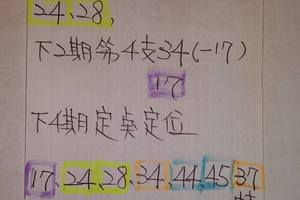 24、28、
下2期第4支34(-17)
17
下4期定点定位
17、24、28、34、44、45、37
特